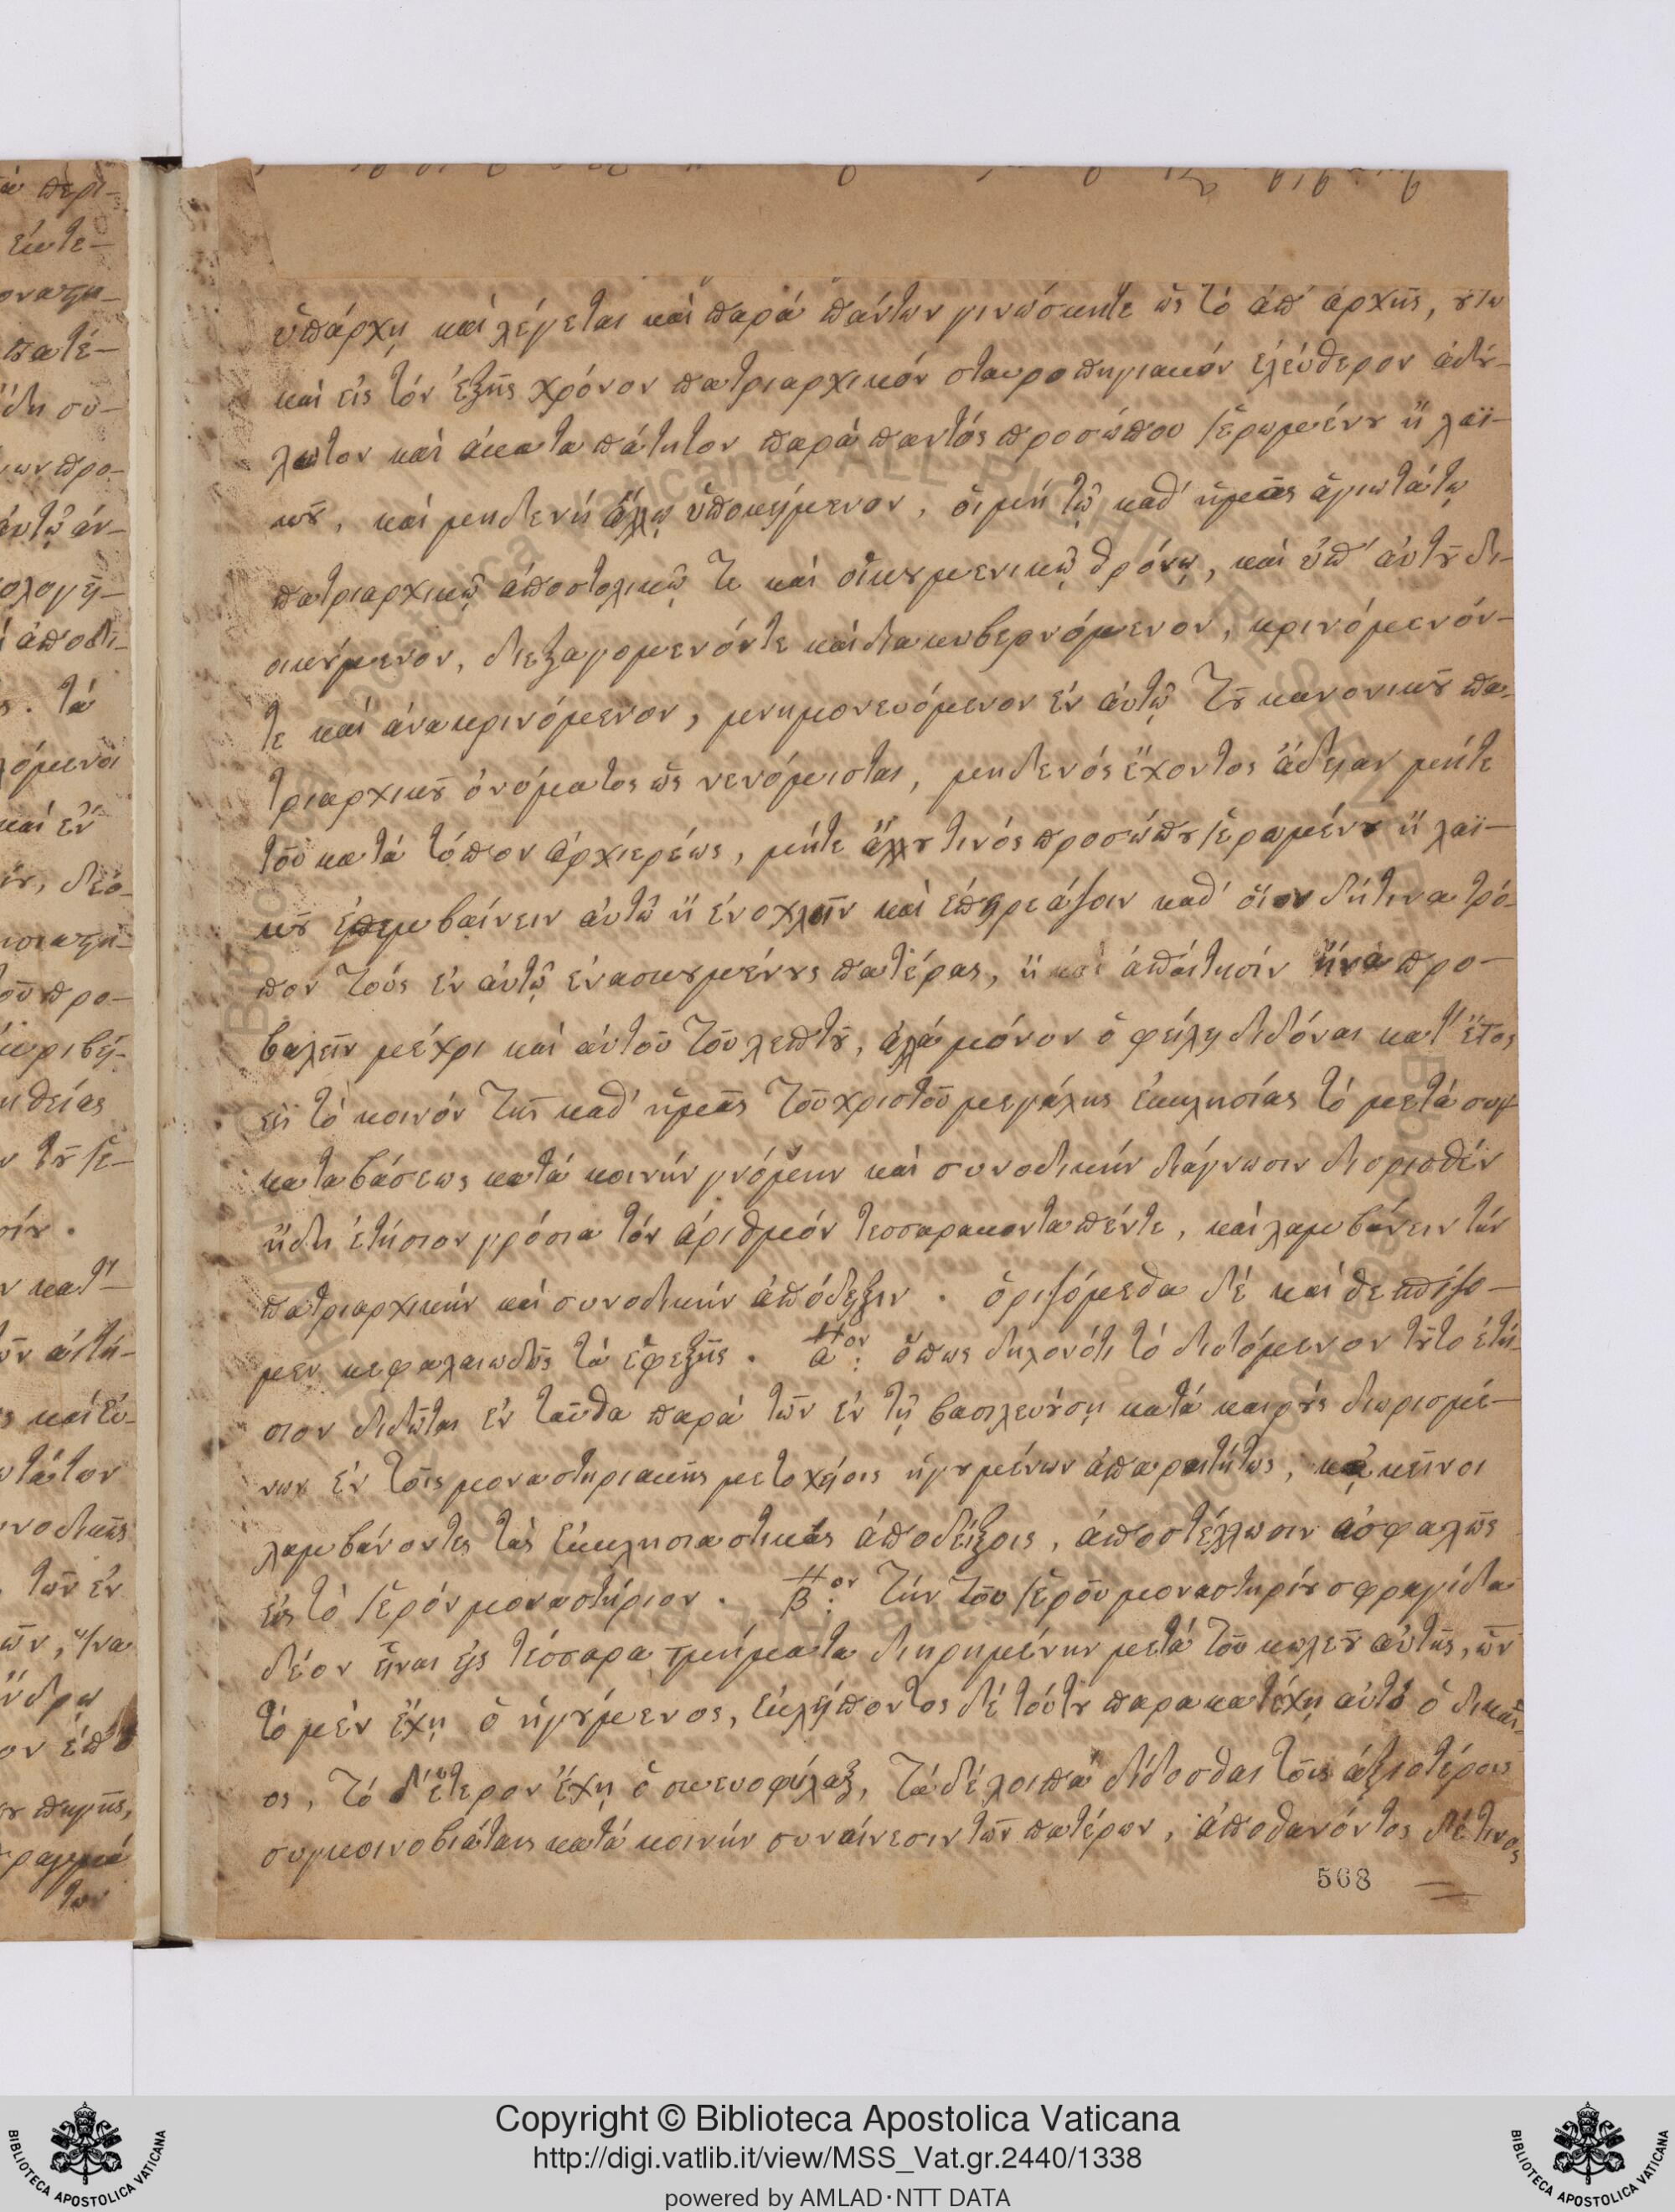 ὑπάρχῃ καὶ λέγεται καὶ παρὰ πάντων γινώσκητε ὡς τὸ ἀπ' ἀρχῆς, ȣτω
καὶ εἰς τὸν ἑξῆς χρόνον πατριαρχικόν σταυροπηγιακόν ἐλεύθερον ἀδȣ́-
λωτον καὶ ἀκαταπάτητον παρὰ παντός προσώπου ἱερωμένȣ ἢ λαϊ-
κȣ͂, καὶ μηδενὴ ἄλλῳ ὑποκήμενον, οἰ μὴ τῷ καθ' ἡμᾶς ἁγιωτάτῳ
πατριαρχικῷ ἀποστολικῷ τε καὶ οἰκȣμενικῷ θρόνῳ, καὶ ὑπ' αὐτȣ͂ δι-
οικȣ́μενον, διεξαγομενόντε καὶ διακυβερνόμενον, κρινόμενόν-
τε καὶ ἀνακρινόμενον, μνημονευόμενον ἐν αὐτῷ τȣ͂ κανονικȣ͂ πα-
τριαρχικȣ͂ ὀνόματος ὡς νενόμισται, μηδενός ἔχοντος ἄδειαν μήτε
τοῦ κατὰ τόπον ἀρχιερέως, μήτε ἄλλȣ τινός προσώπȣ ἱερωμένȣ ἢ λαϊ-
κȣ͂ ἐπεμβαίνειν αὐτῶ ἢ ἐνοχλεῖν καὶ ἐπηρεάζειν καθ' οἷον δήτινα τρό-
πον τοὺς ἐν αὐτῷ ἐνασκȣμένȣς πατέρας, ἢ καὶ ἀπαίτησίν τινὰ προ-
βαλεῖν μέχρι καὶ αὐτοῦ τοῦ λεπτȣ͂, ἀλλὰ μόνον ὀφείλῃ διδόναι κατ' ἔτος
εἰς τὸ κοινόν τῆς καθ' ἡμᾶς τοῦ χριστοῦ μεγάλης ἐκκλησίας τὸ μετὰ συγ
καταβάσεως κατὰ κοινήν γνόμην καὶ συνοδικήν διάγνωσιν διορισθέν
ἤδη ἐτήσιον γρόσια τόν ἀριθμόν τεσσαρακονταπέντε, καὶ λαμβάνειν τήν
πατριαρχικήν καὶ συνοδικήν ἀπόδειξιν . ὁριζόμεθα δέ καὶ θεσπίζο-
μεν κεφαλαιωδῶς τὰ ἐφεξῆς . α^ον: ὅπως δηλονότι τὸ διδόμενον τȣ͂το ἐτή-
σιον διδῶται ἐν ταῦθα παρὰ τῶν ἐν τῇ βασιλευȣ́σῃ κατὰ καιρȣ́ς διωρισμέ-
νων ἐν τοῖς μοναστηριακῆς μετοχίοις ἡγȣμένων ἀπαραιτήτως, κἀκεῖνοι
λαμβάνοντες τὰς ἐκκλησιαστικὰς ἀποδείξεις, ἀποστέλλωσιν ἀσφαλῶς
εἰς τὸ ἱερόν μοναστήριον . β^ον: τήν τοῦ ἱεροῦ μοναστηρίȣ σφραγίδα
δέον εἶναι εἰς τέσσαρα τμήματα διηρημένην μετὰ τοῦ κωλεȣ͂ αὐτῆς, ὧν
τὸ μέν ἔχῃ ὁ ἡγȣ́μενος, ἐκλήποντος δέ τούτȣ παρακατέχῃ αὐτό ὁ δικαῖ-
ος, τό δεύτερον ἔχῃ ὁ σκευοφύλαξ, τὰ δέ λοιπά δίδοσθαι τοῖς ἀξιοτέροις
συγκοινοβιάταις κατὰ κοινήν συναίνεσιν τῶν πατέρων, ἀποθανόντος δέ τινος
568
Copyright © Biblioteca Apostolica Vaticana
http://digi.vatlib.it/view/MSS_Vat.gr.2440/1338
powered by AMLAD·NTT DATA
BIBLIOTECA APOSTOLICA VATICANA
BIBLIOTECA APOSTOLICA VATICANA